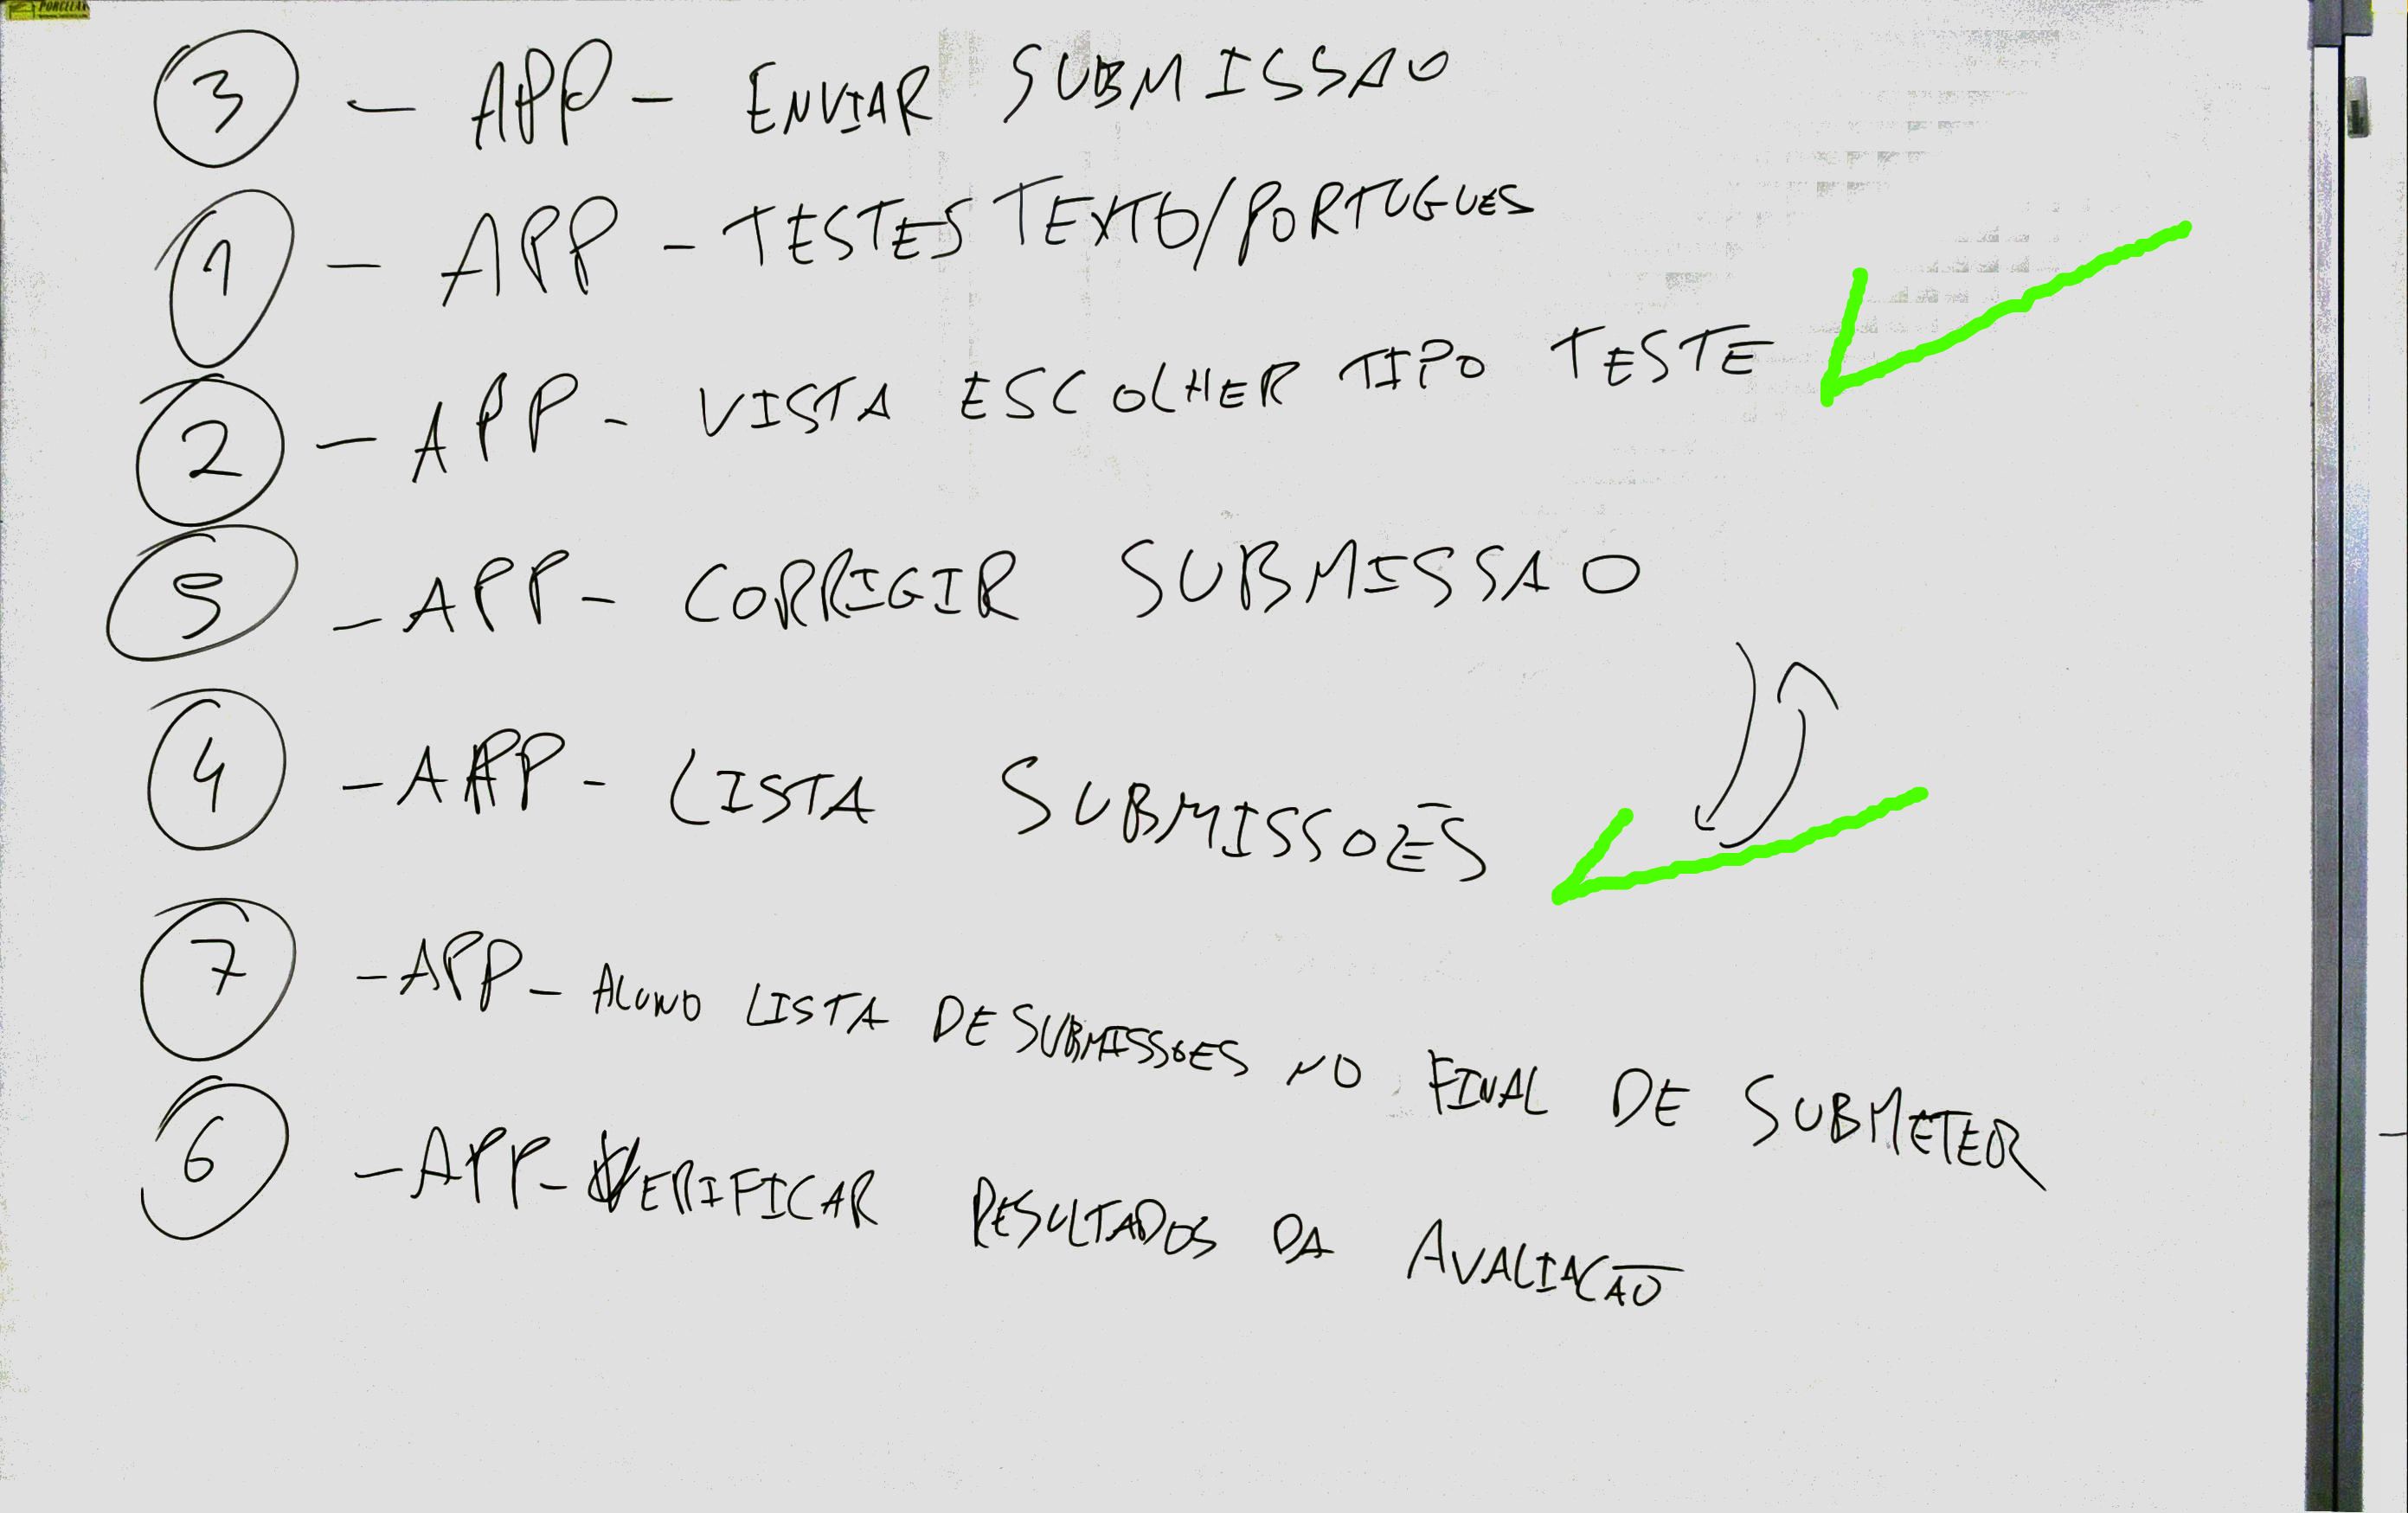 3 - APP - ENVIAR SUBMISSAO
1 - APP - TESTES TEXTO/PORTUGUES
2 - APP - VISTA ESCOLHER TIPO TESTE
5 - APP - CORRIGIR SUBMISSAO
4 - APP - LISTA SUBMISSOES
7 - APP - ALUNO LISTA DE SUBMISSOES NO FINAL DE SUBMETER
6 - APP - VERIFICAR RESULTADOS DA AVALIACÃO